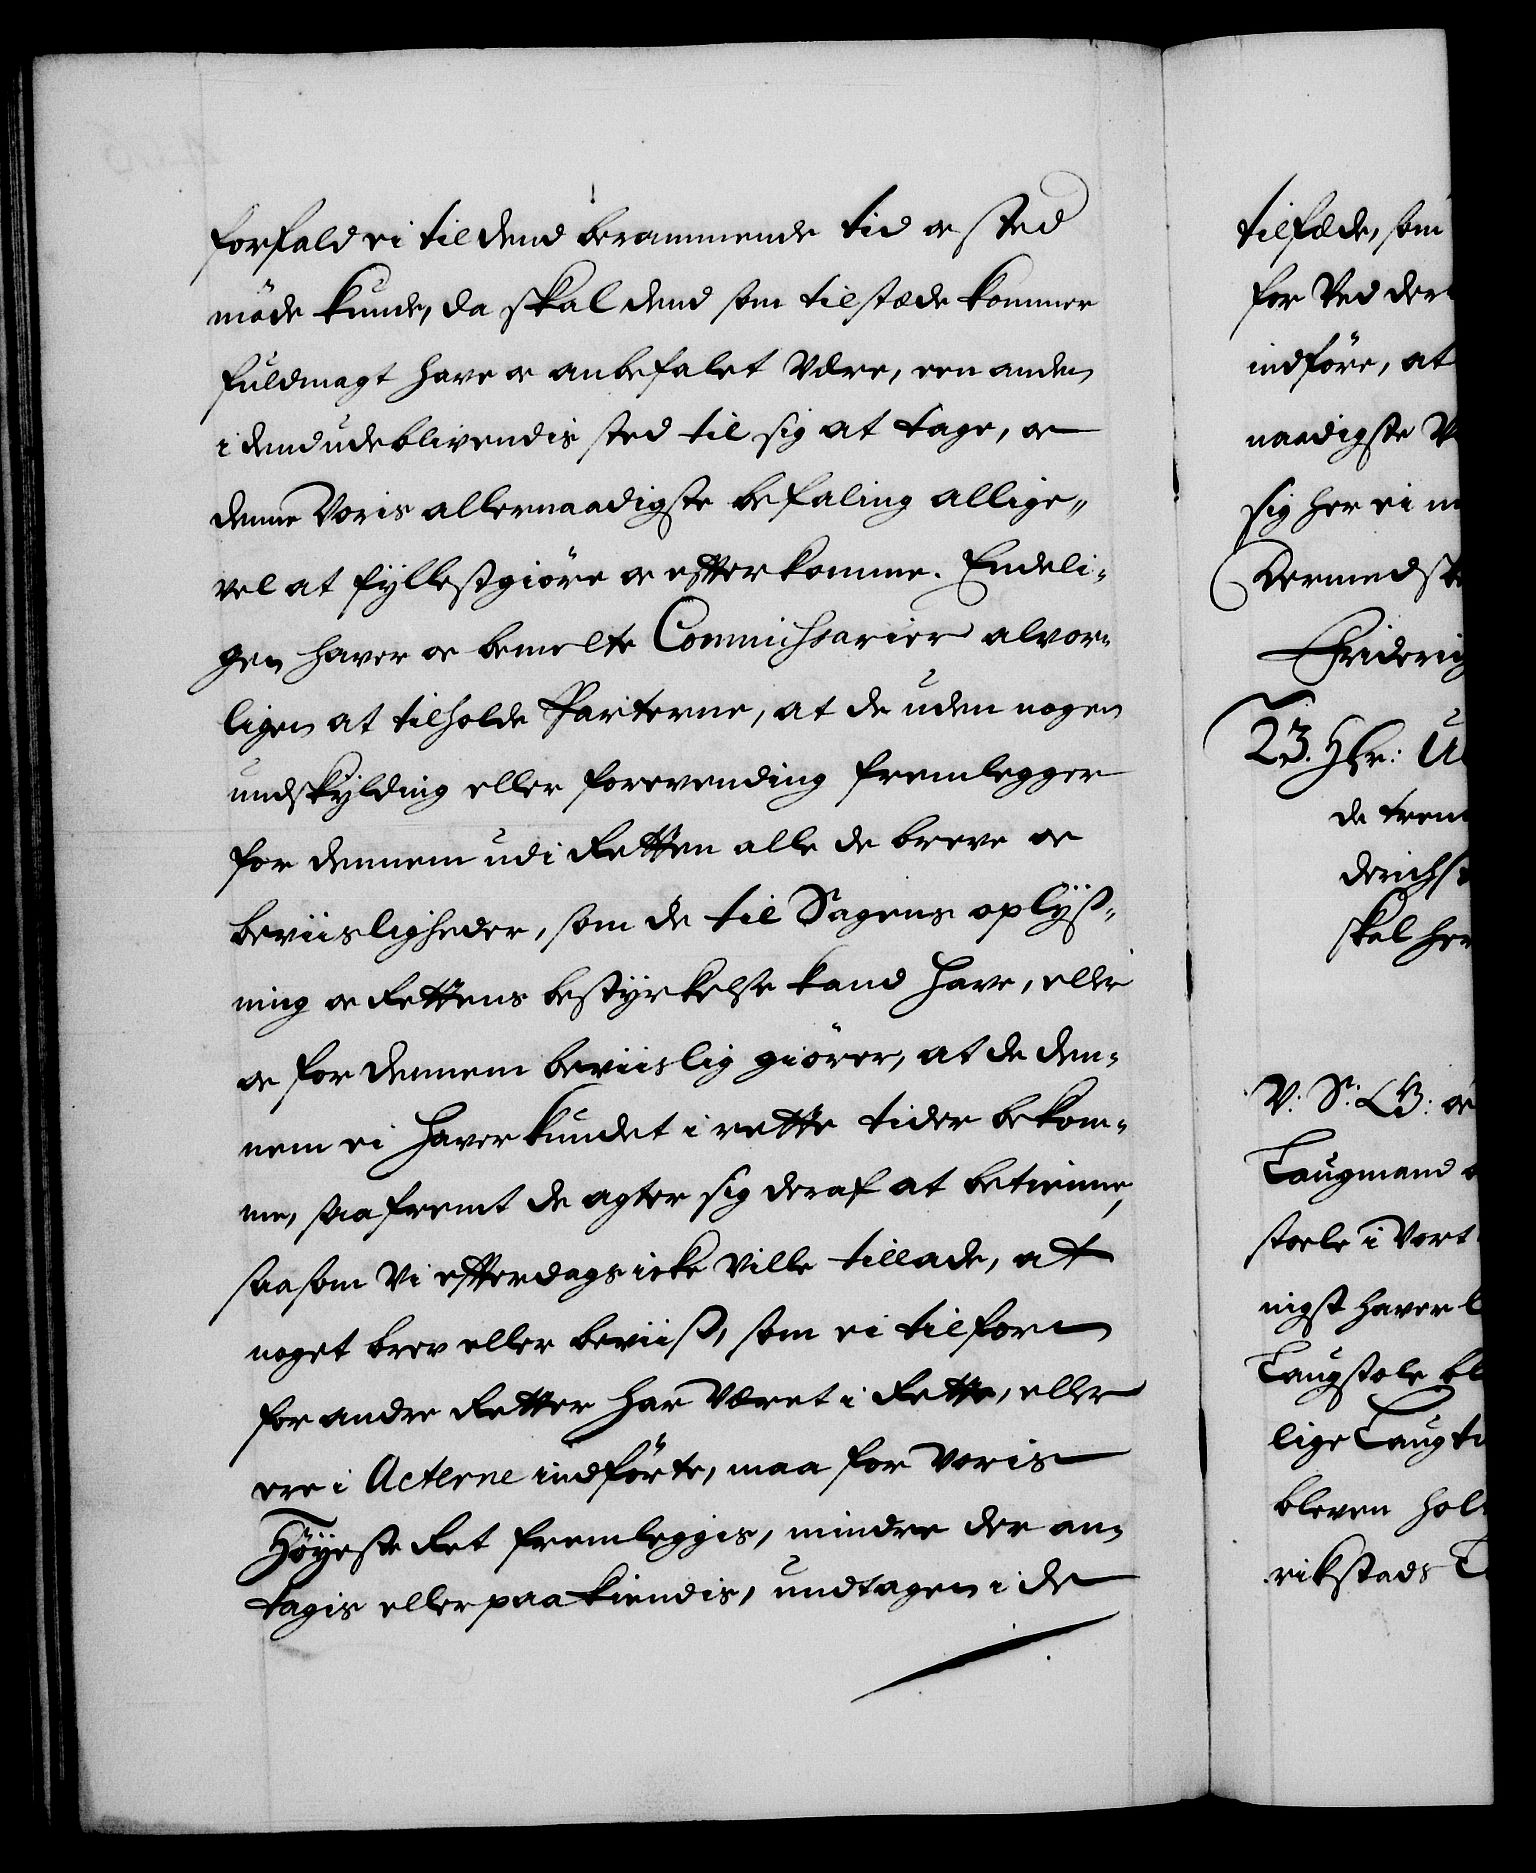 forfald ei til dend berammende tid oc sted
møde kunde, da skal dend som tilstæde kommer
fuldmagt have oc anbefalet være, een anden
i dend udeblivendis sted til sig at tage, oc
denne Voris allernaadigste befaling allige„
vel at fyllestgiøre oc efterkomme. Endeli„
gen haver oc bemelte Commissarier alvor„
ligen at tilholde Parterne, at de uden nogen
undskylding eller forevending fremlegger
for dennem udi Retten alle de breve oc
beviisligheder, som de til Sagens oplyß„
ning oc Rettens bestyrkelse kand have, eller
oc for dennem beviislig giører, at de den„
nem ei haver kundet i rette tider bekom„
me, saafremt de agter sig deraf at betienne,
saasom Vi efterdags icke ville tillade, at
noget brev eller beviiß, som ei tilforn
for andre Retter har været i Rette, eller
ere i Acterne indførte, maa for Voris
Høyeste Ret fremleggis, mindre der an„
tagis eller paakiendis, undtagen i de
tilfælde, som
for Ved der
indføre, at
naadigste V
sig her ei
Dermed sk
Friderichs
23. Hr: U
de tren
derichst
skal her
V: S: G: oc
Laugmand
stoele i Vort
nigst haver
Laugstole bl
lige Laugti
bleven hol
rikstads L